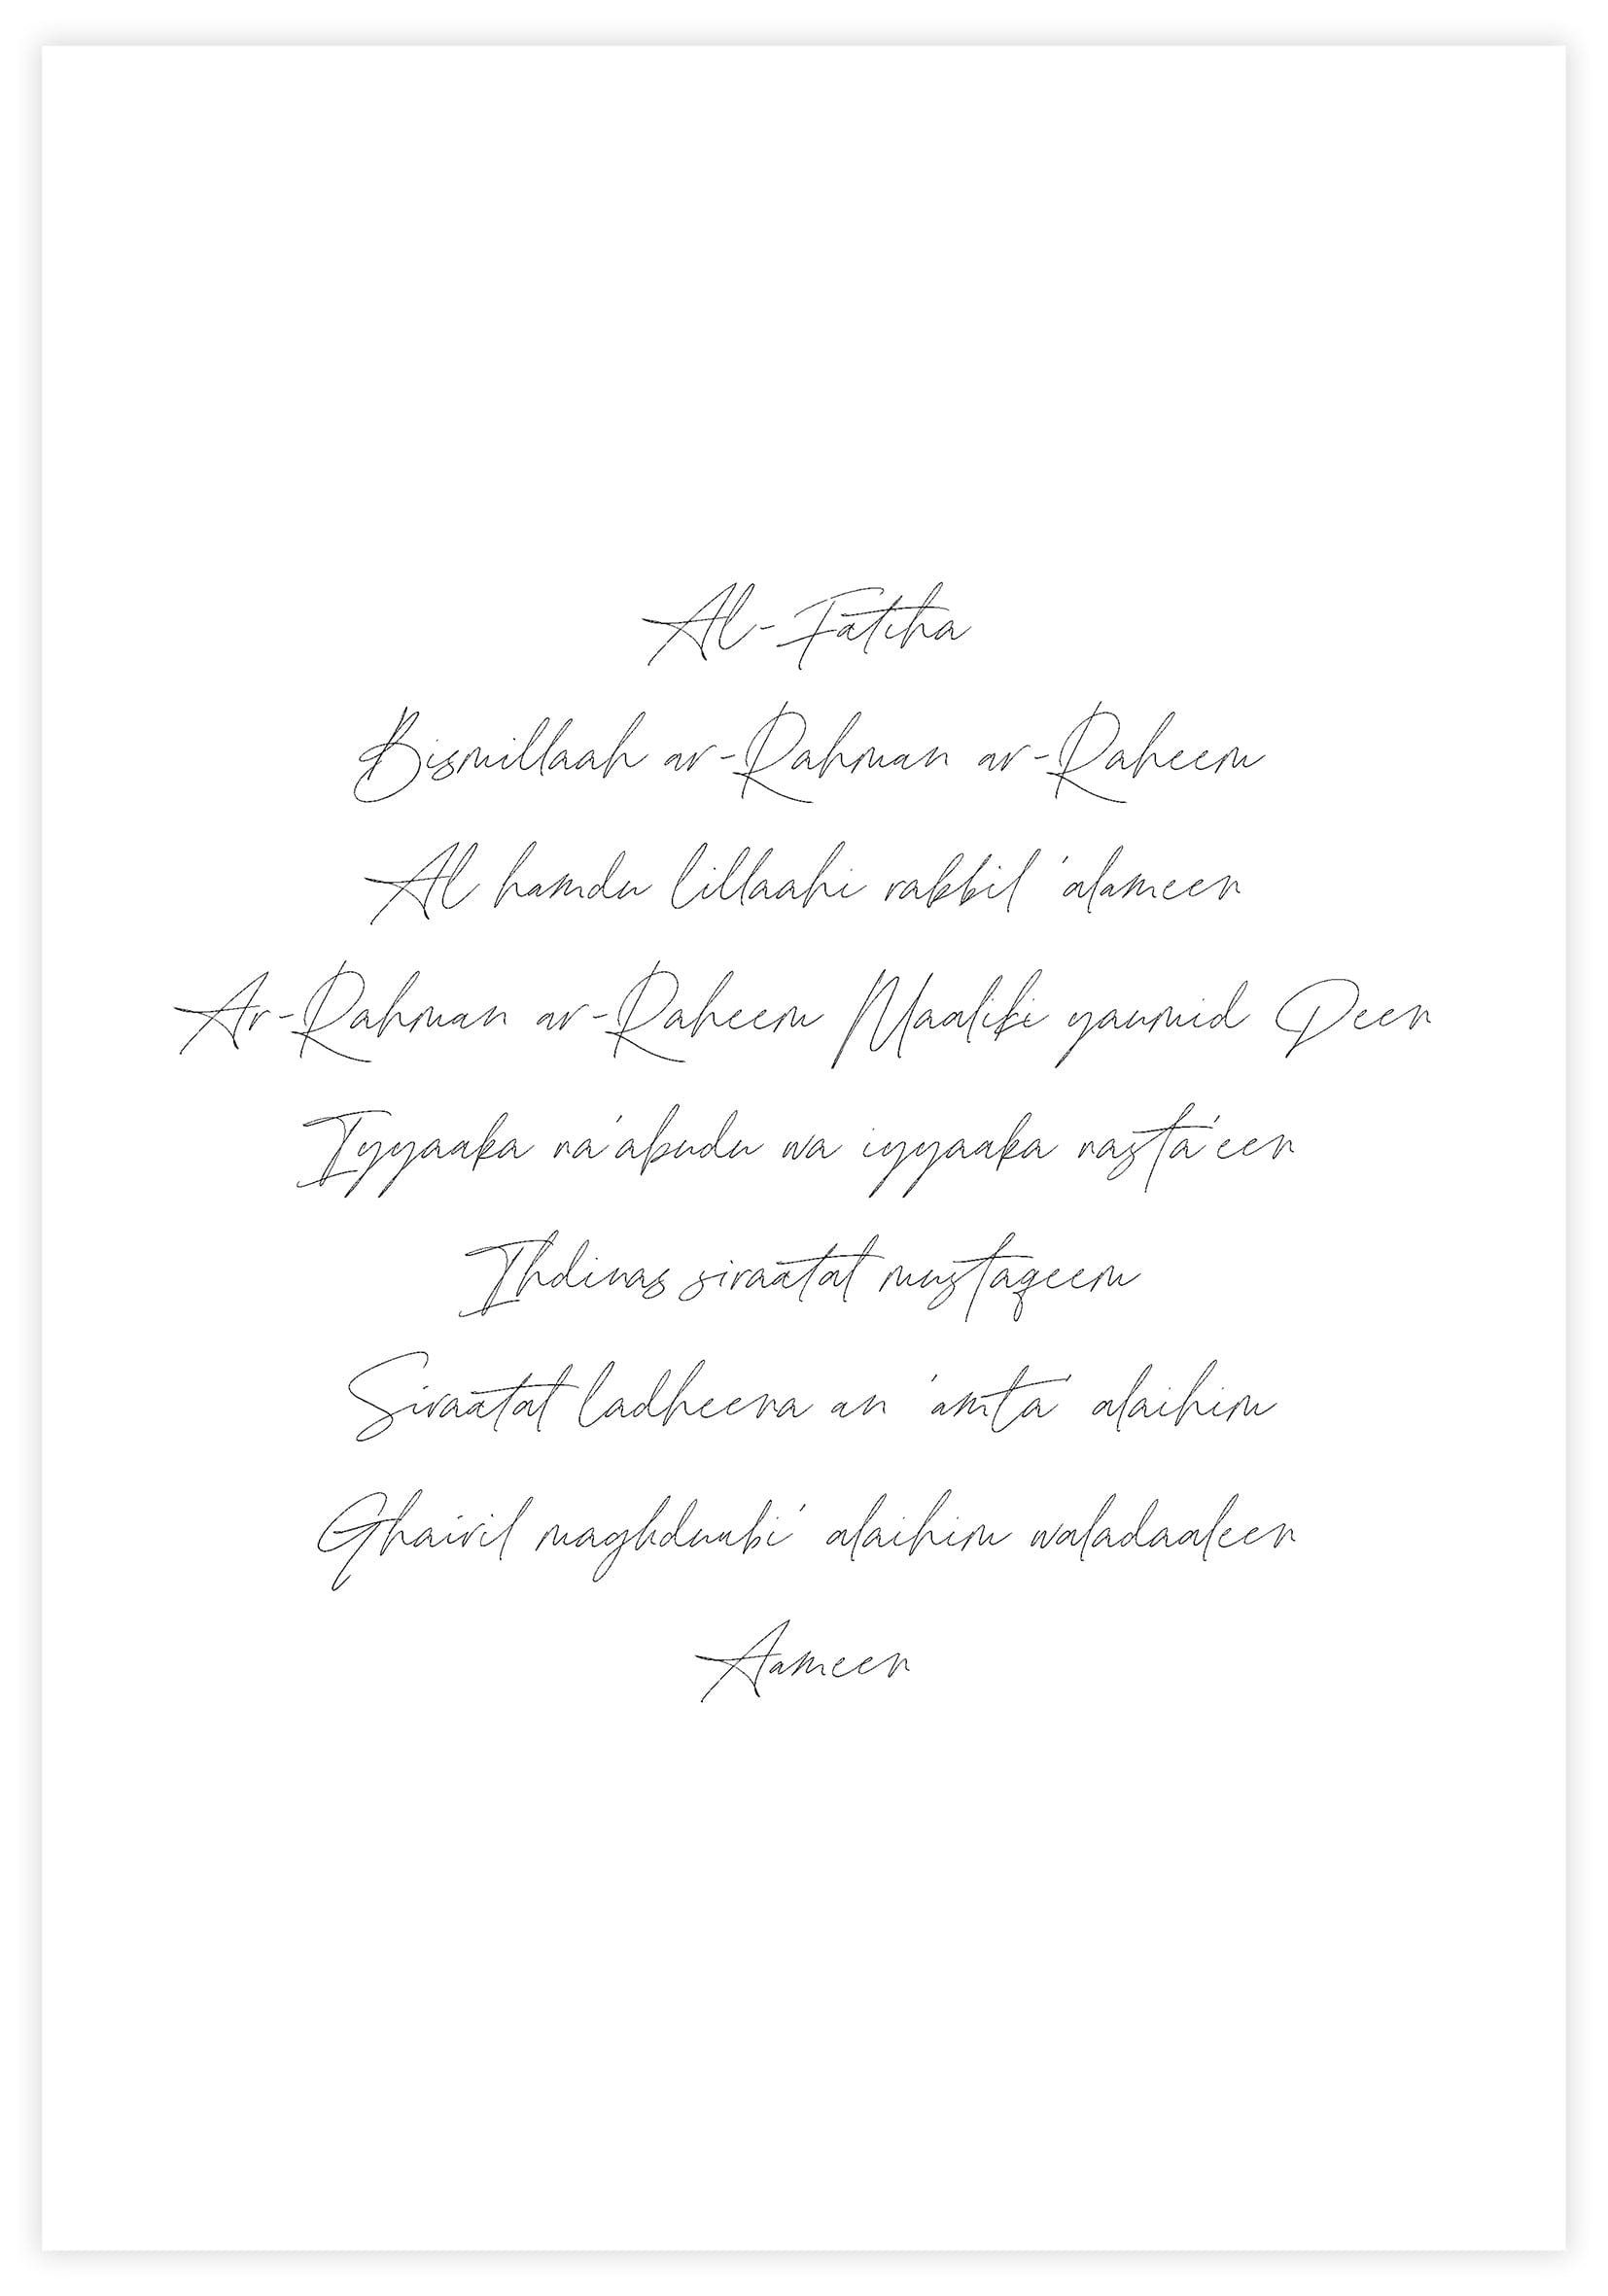 Al-Fatiha
Bismillaah ar-Rahman ar-Raheem
Al hamdu lillaahi rabbil 'alameen
Ar-Rahman ar-Raheem Maaliki yaumid Deen
Iyyaaka na'abudu wa iyyaaka nasta'een
Ihdinas siraatat mustaqeem
Siraatat ladheena an 'amta' alaihim
Ghairil maghduubi' alaihim waladaaleen
Aameen